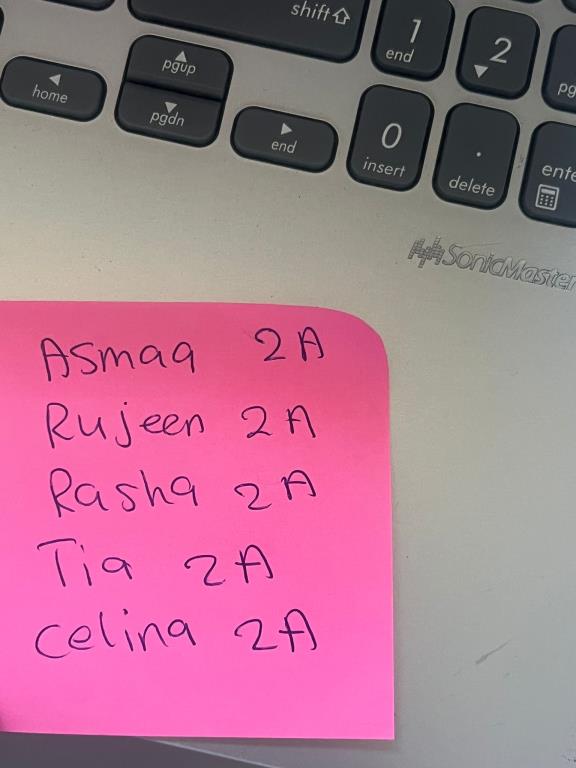 shift
1
end
2
pgup
home
pgdn
end
0
insert
.
delete
SonicMaster
Asmaa 2A
Rujeen 2A
Rasha 2A
Tia 2A
Celina 2A